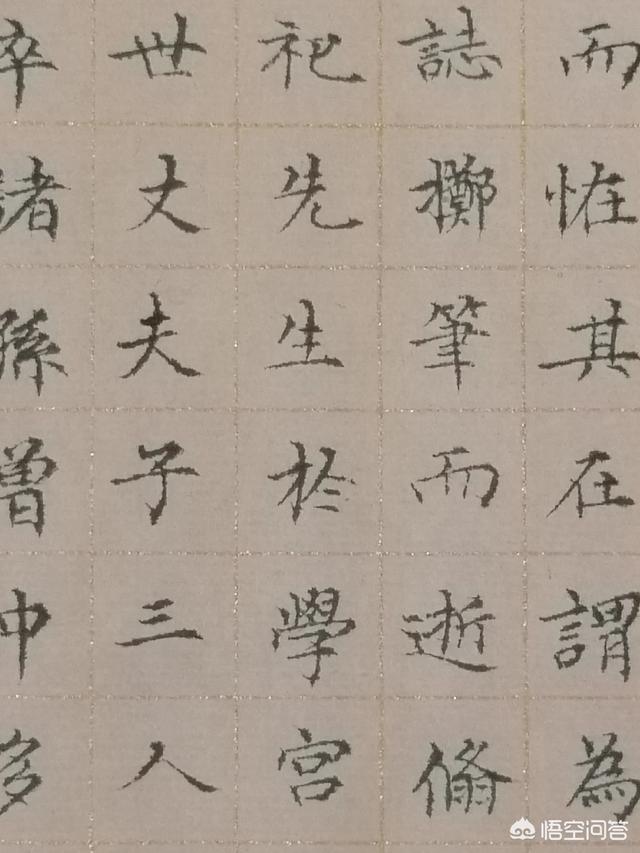 而恠其在謂為
誌擲筆而逝翛
祀先生於學宮
世丈夫子三人
卒諸孫曾中
悟空问答